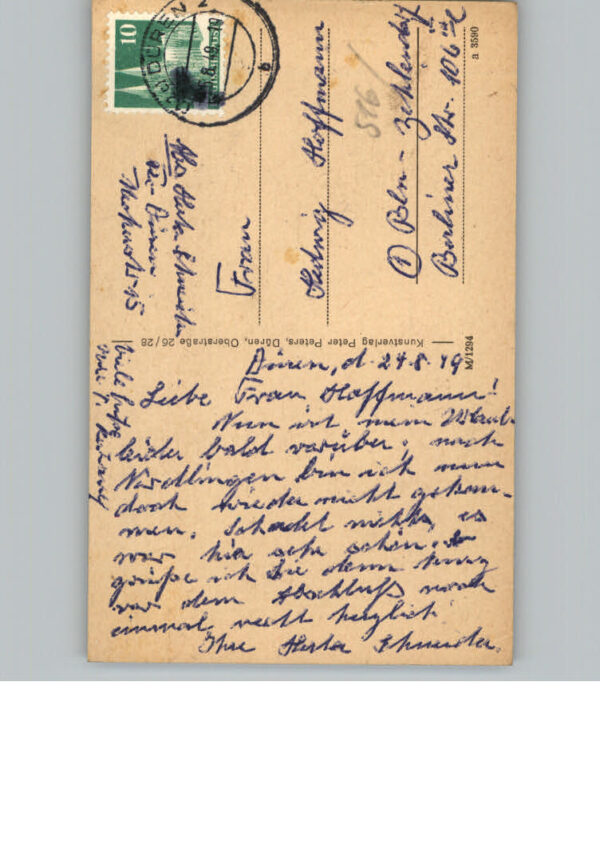 10
DÜREN
8.49-19
b
Abs. Herta Schneider
Düren
15
Frau
Hedwig Hoffmann
(1) Bln-Zehlendorf
Berliner Str. 106
516
a 3590
Kunstverlag Peter Peters, Düren, Oberstraße 26/28
M/1294
Düren, d. 24.8.49
Liebe Frau Hoffmann!
Nun ist mein Urlaub
leider bald vorüber, nach
Nördlingen bin ich nun
doch wieder nicht gekom-
men. Schadet nichts, es
war hier sehr schön. So
grüße ich Sie denn kurz
vor dem Abschluß noch
einmal recht herzlich
Ihre Herta Schneider.
Viele Grüße